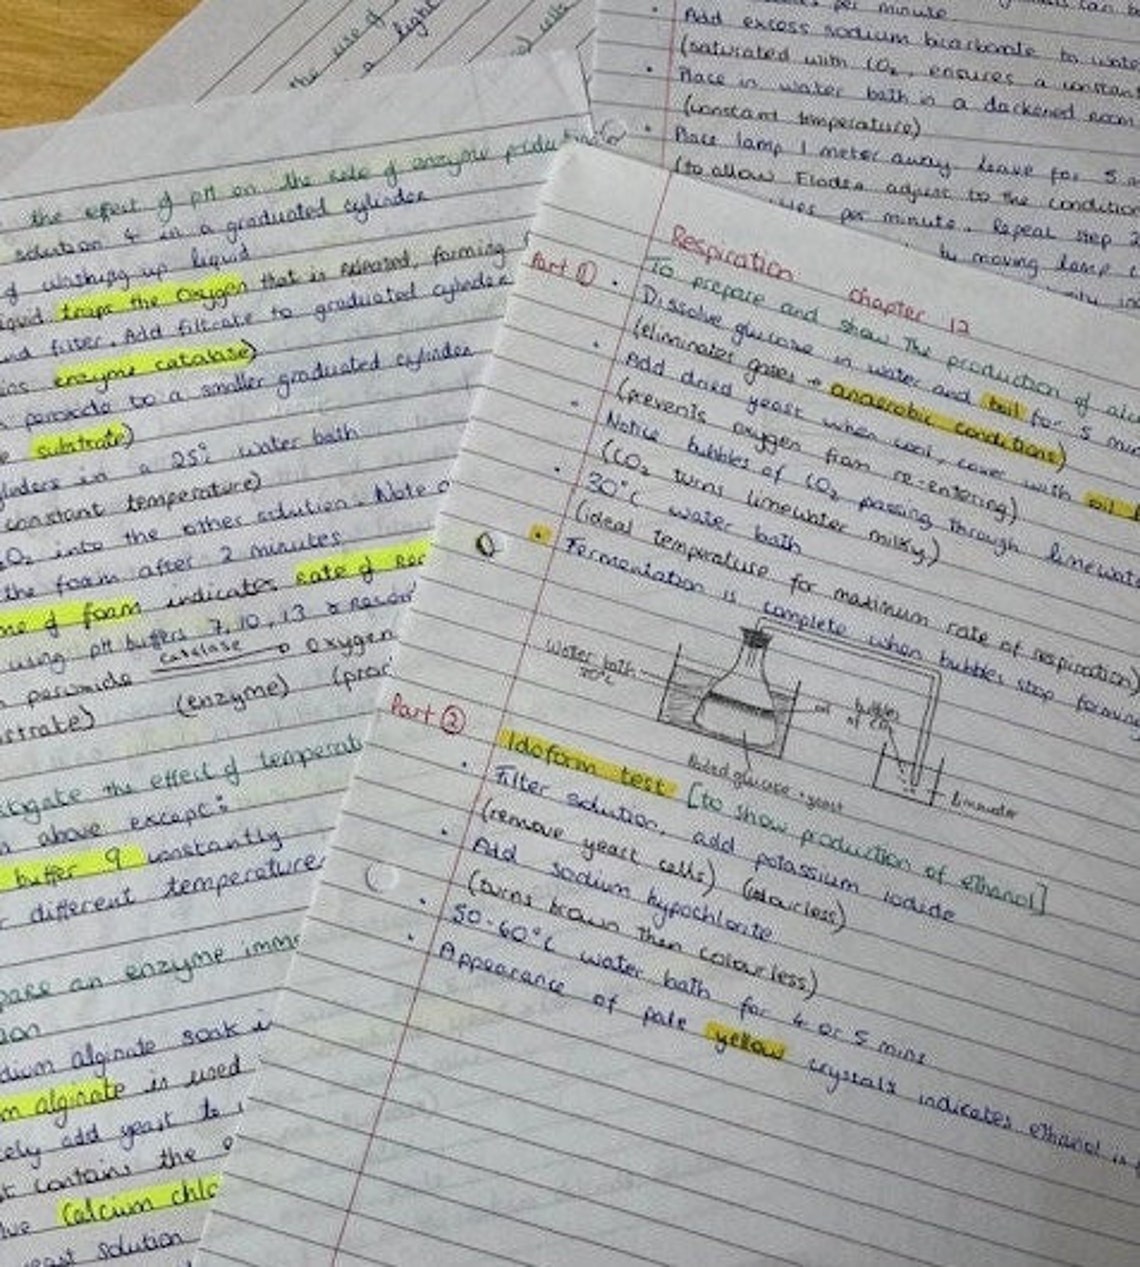 the use of
a light
cells
per minute
Add excess sodium bicarbonate to wate
(saturated with CO2, ensures a constant
Place in water bath in a darkened room
(constant temperature)
Place lamp 1 meter away. Leave for 5 m
(to allow Elodea adjust to the condition
per minute. Repeat step 2
by moving lamp
the effect of pH on the rate of enzyme produ
solution & in a graduated cylinder
of washing up liquid
iquid traps the oxygen that is released, forming
nd filter. Add filtrate to graduated cylinder
ins enzyme catalase)
peroxide to a smaller graduated cylinder
e substrate)
ylinders in a 25°c water bath
constant temperature)
2O2 into the other solution. Note
the foam after 2 minutes
me of foam indicates rate of
using pH buffers 7, 10, 13 & record
peroxide catalase → oxygen
strate) (enzyme) (proc
stigate the effect of temperat
above except:
buffer 9 constantly
r different temperature
pare an enzyme imm
ion
dium alginate soak i
m alginate is used
tely add yeast to
t contains the
lve calcium chlo
yeast solution
Respiration chapter 12
Part ①
To prepare and show the production of alc
Dissolve glucose in water and boil for 5 min
(eliminates gases → anaerobic conditions)
Add dried yeast when cool, cover with oil
(prevents oxygen from re-entering)
Notice bubbles of CO2 passing through limewat
(CO2 turns limewater milky)
30°c water bath
(ideal temperature for maximum rate of respiration)
Fermentation is complete when bubbles stop forming
Water bath
30°C
oil
bubbles
of CO2
Boiled glucose + yeast
limewater
Part ②
Idoform test [to show production of ethanol]
Filter solution, add potassium iodide
(remove yeast cells) (colourless)
Add sodium hypochlorite
(turns brown then colourless)
50-60°c water bath for 4 or 5 mins
Appearance of pale yellow crystals indicates ethanol is